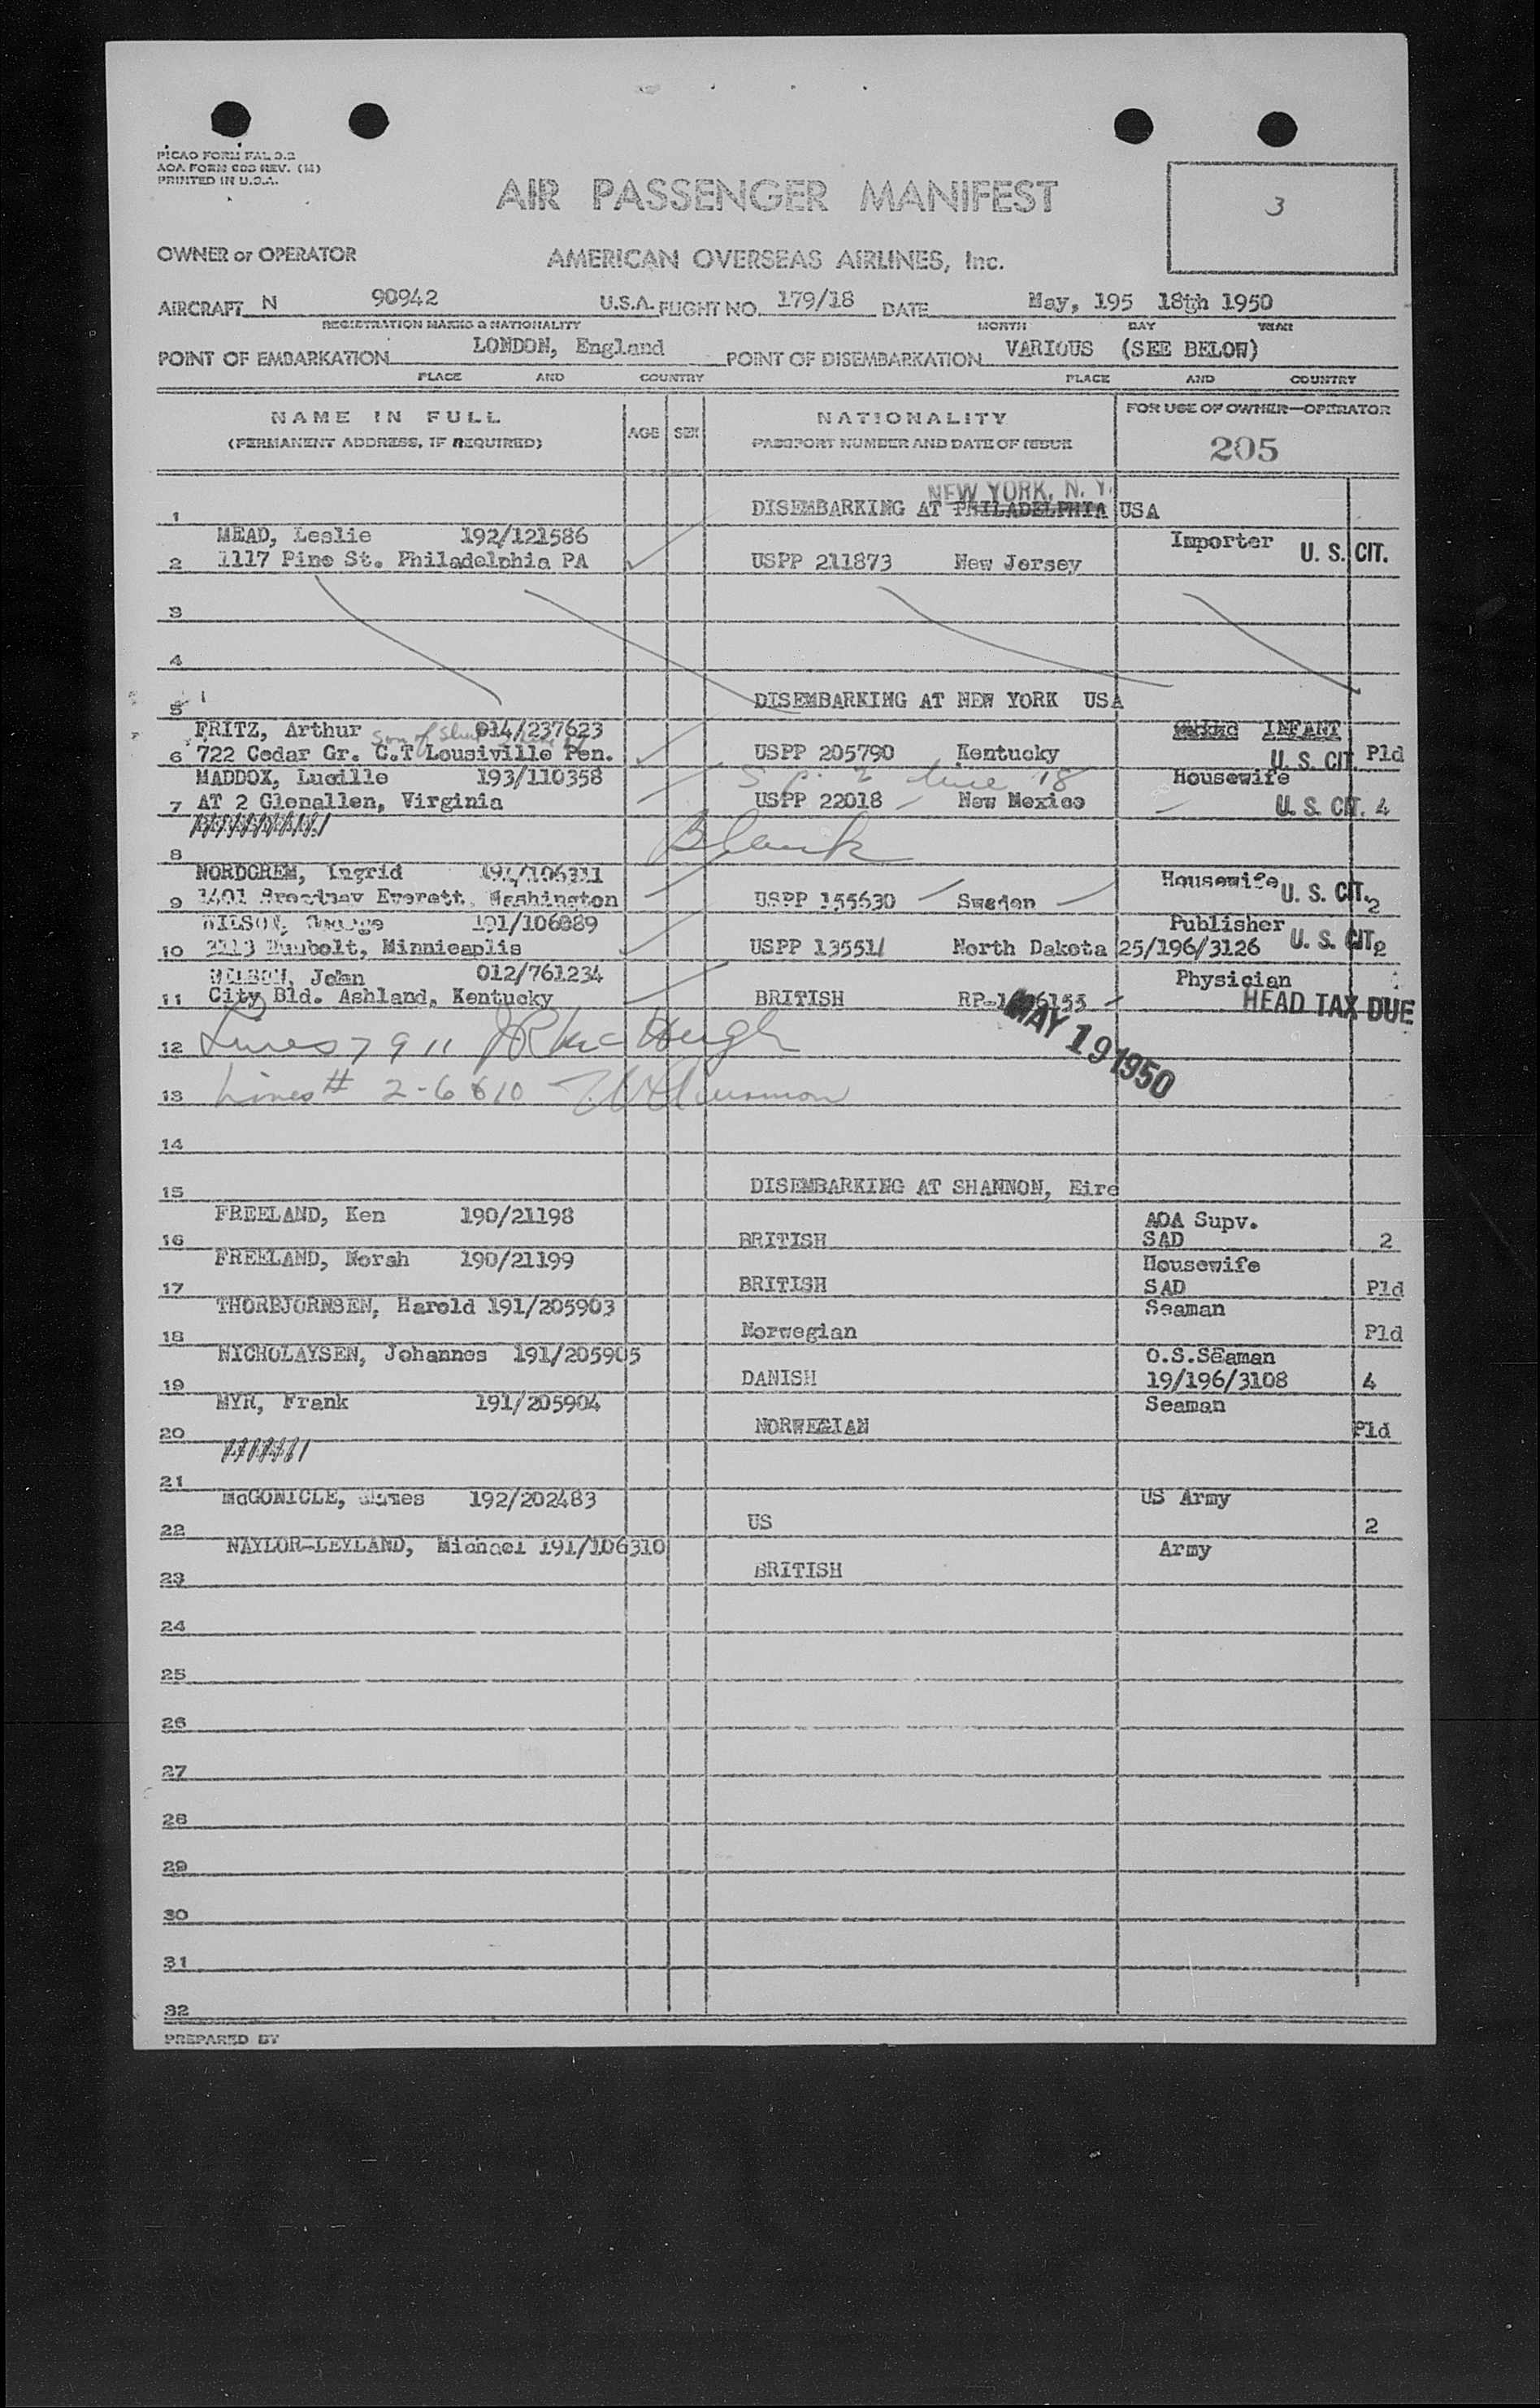 PICAO FORM FAL 3.2
AOA FORM 603 REV. (M)
PRINTED IN U.S.A.
AIR PASSENGER MANIFEST
3
OWNER or OPERATOR AMERICAN OVERSEAS AIRLINES, Inc.
AIRCRAFT N 90942 U.S.A. FLIGHT NO. 179/18 DATE May, 195 18th 1950
REGISTRATION MARKS & NATIONALITY MONTH DAY YEAR
POINT OF EMBARKATION LONDON, England POINT OF DISEMBARKATION VARIOUS (SEE BELOW)
PLACE AND COUNTRY PLACE AND COUNTRY
NAME IN FULL AGE SEX NATIONALITY FOR USE OF OWNER—OPERATOR
(PERMANENT ADDRESS, IF REQUIRED) PASSPORT NUMBER AND DATE OF ISSUE 205
NEW YORK, N. Y.
1 DISEMBARKING AT PHILADELPHIA USA
MEAD, Leslie 192/121586 Importer U. S. CIT.
2 1117 Pine St. Philadelphia PA USPP 211873 New Jersey
3
4
5 DISEMBARKING AT NEW YORK USA
FRITZ, Arthur 014/237623 INFANT
son of
6 722 Cedar Gr. C.T Lousiville Pen. USPP 205790 Kentucky U. S. CIT. Pld
MADDOX, Lucille 193/110358 Housewife
7 AT 2 Glenallen, Virginia USPP 22018 New Mexico U. S. CIT. 4
8 Blank
NORDGREM, Ingrid 191/106311 Housewife U. S. CIT. 2
9 1401 Broadway Everett, Washington USPP 155630 Sweden
WILSON, George 191/106889 Publisher
10 Humbolt, Minnieaplis USPP 13551 North Dakota 25/196/3126 U. S. CIT. 2
WILSON, John 012/761234 Physician
11 City Bld. Ashland, Kentucky BRITISH HEAD TAX DUE
MAY 19 1950
12 Lines 7 9 11
13 Lines # 2-6 & 10
14
15 DISEMBARKING AT SHANNON, Eire
FREELAND, Ken 190/21198 AOA Supv.
16 BRITISH SAD 2
FREELAND, Norah 190/21199 Housewife
17 BRITISH SAD Pld
THORBJORNSEN, Harold 191/205903 Seaman
18 Norwegian Pld
NICHOLAYSEN, Johannes 191/205905 O.S.Seaman
19 DANISH 19/196/3108 4
MYR, Frank 191/205904 Seaman
20 NORWEGIAN Pld
21
McGONICLE, James 192/202483 US Army
22 US 2
NAYLOR-LEYLAND, Michael 191/106310 Army
23 BRITISH
24
25
26
27
28
29
30
31
32
PREPARED BY